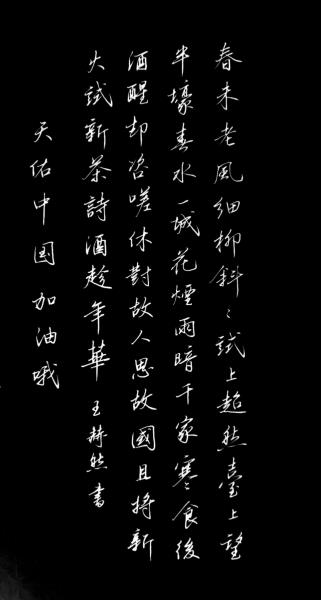 春未老風細柳斜〻試上超然臺上望
半壕春水一城花煙雨暗千家寒食後
酒醒却咨嗟休對故人思故國且將新
火試新茶詩酒趁年華 王赫然書
天佑中国加油哦